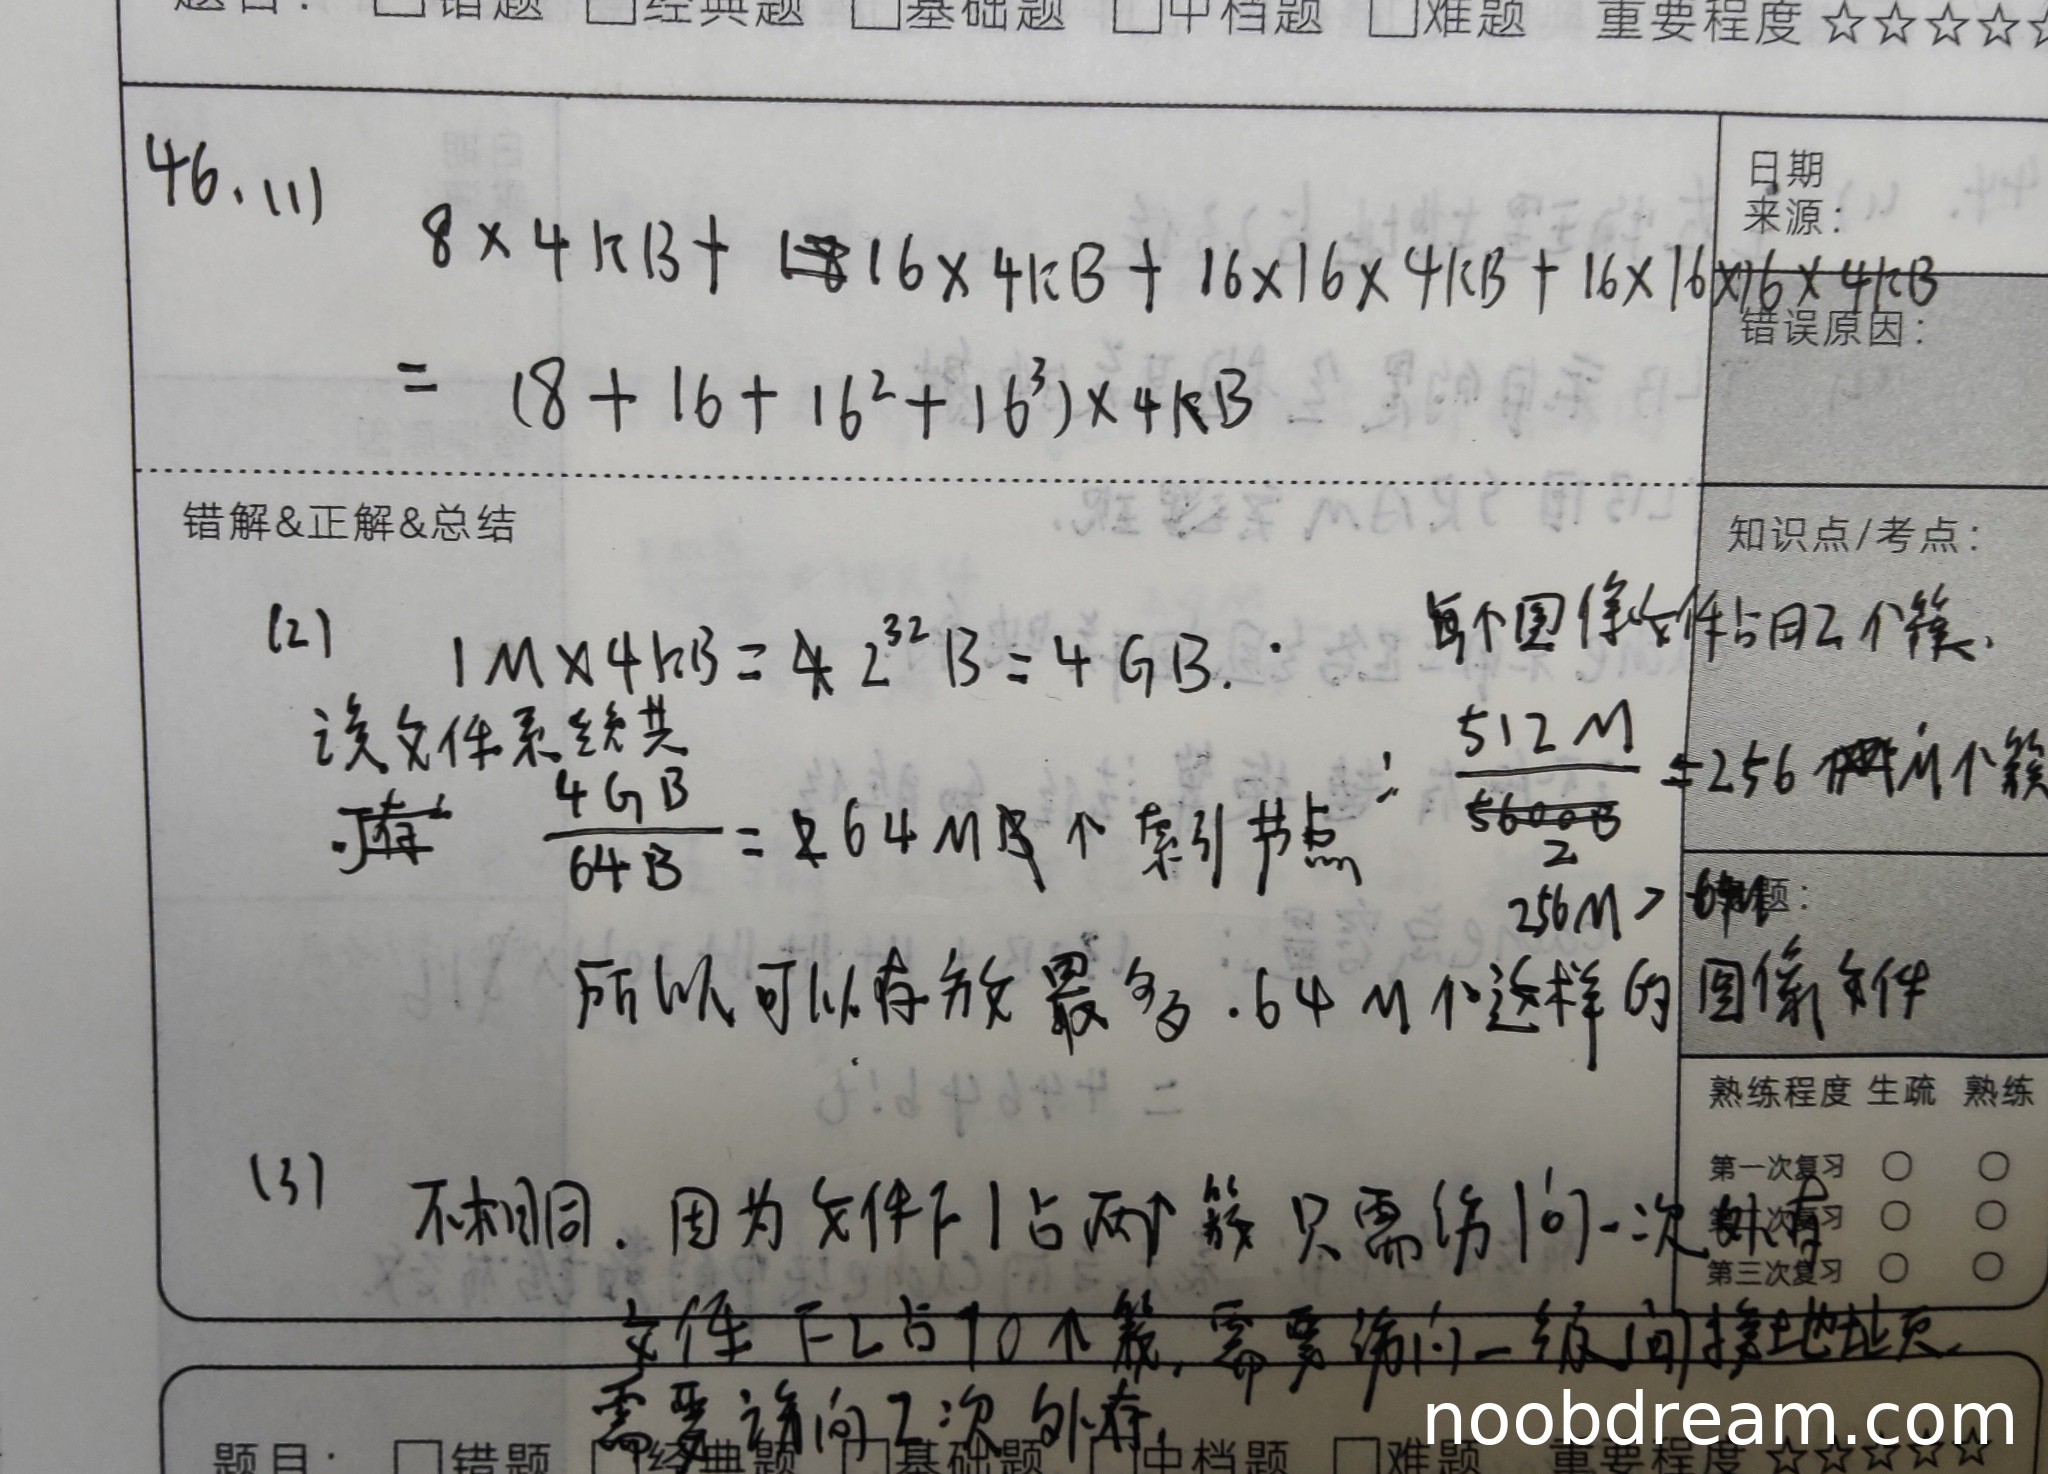 题目： □错题 □经典题 □基础题 □中档题 □难题 重要程度 ☆☆☆☆☆
日期
来源：
46. (1)
8×4KB+ 16×4KB+16×16×4KB+16×16×16×4KB
= (8+16+16²+16³)×4KB
错误原因：
错解&正解&总结
知识点/考点：
(2) 1M×4KB=2³²B=4GB.
每个图像文件占用2个簇.
该文件系统共
4GB/64B=64M个索引节点
512M/2=256M个簇
256M> 64M
题：
所以可以存放最多.64M个这样的图像文件
熟练程度 生疏 熟练
第一次复习 ○ ○
第二次复习 ○ ○
第三次复习 ○ ○
(3) 不相同. 因为文件F1占两个簇只需访问一次外存
文件F2占10个簇,需要访问一级间接地址页.
需要访问2次外存.
题目： □错题 □经典题 □基础题 □中档题 □难题 重要程度 ☆☆☆☆☆
noobdream.com